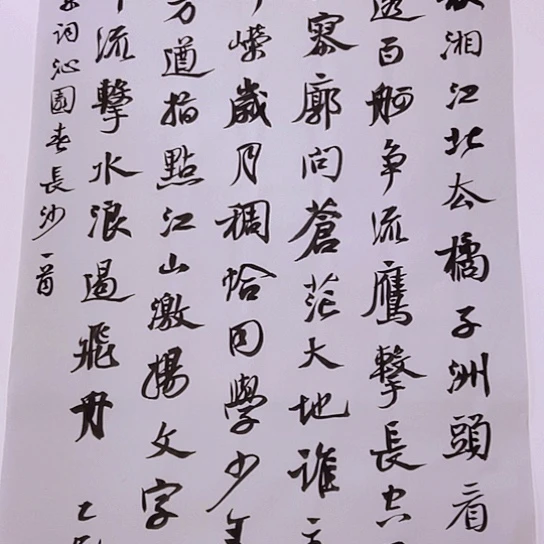 湘江北去橘子洲頭看
百舸争流鷹擊長空
寥廓问蒼茫大地谁主
嵘歲月稠恰同學少年
方遒指點江山激揚文字
流擊水浪遏飛舟
词沁園春長沙一首